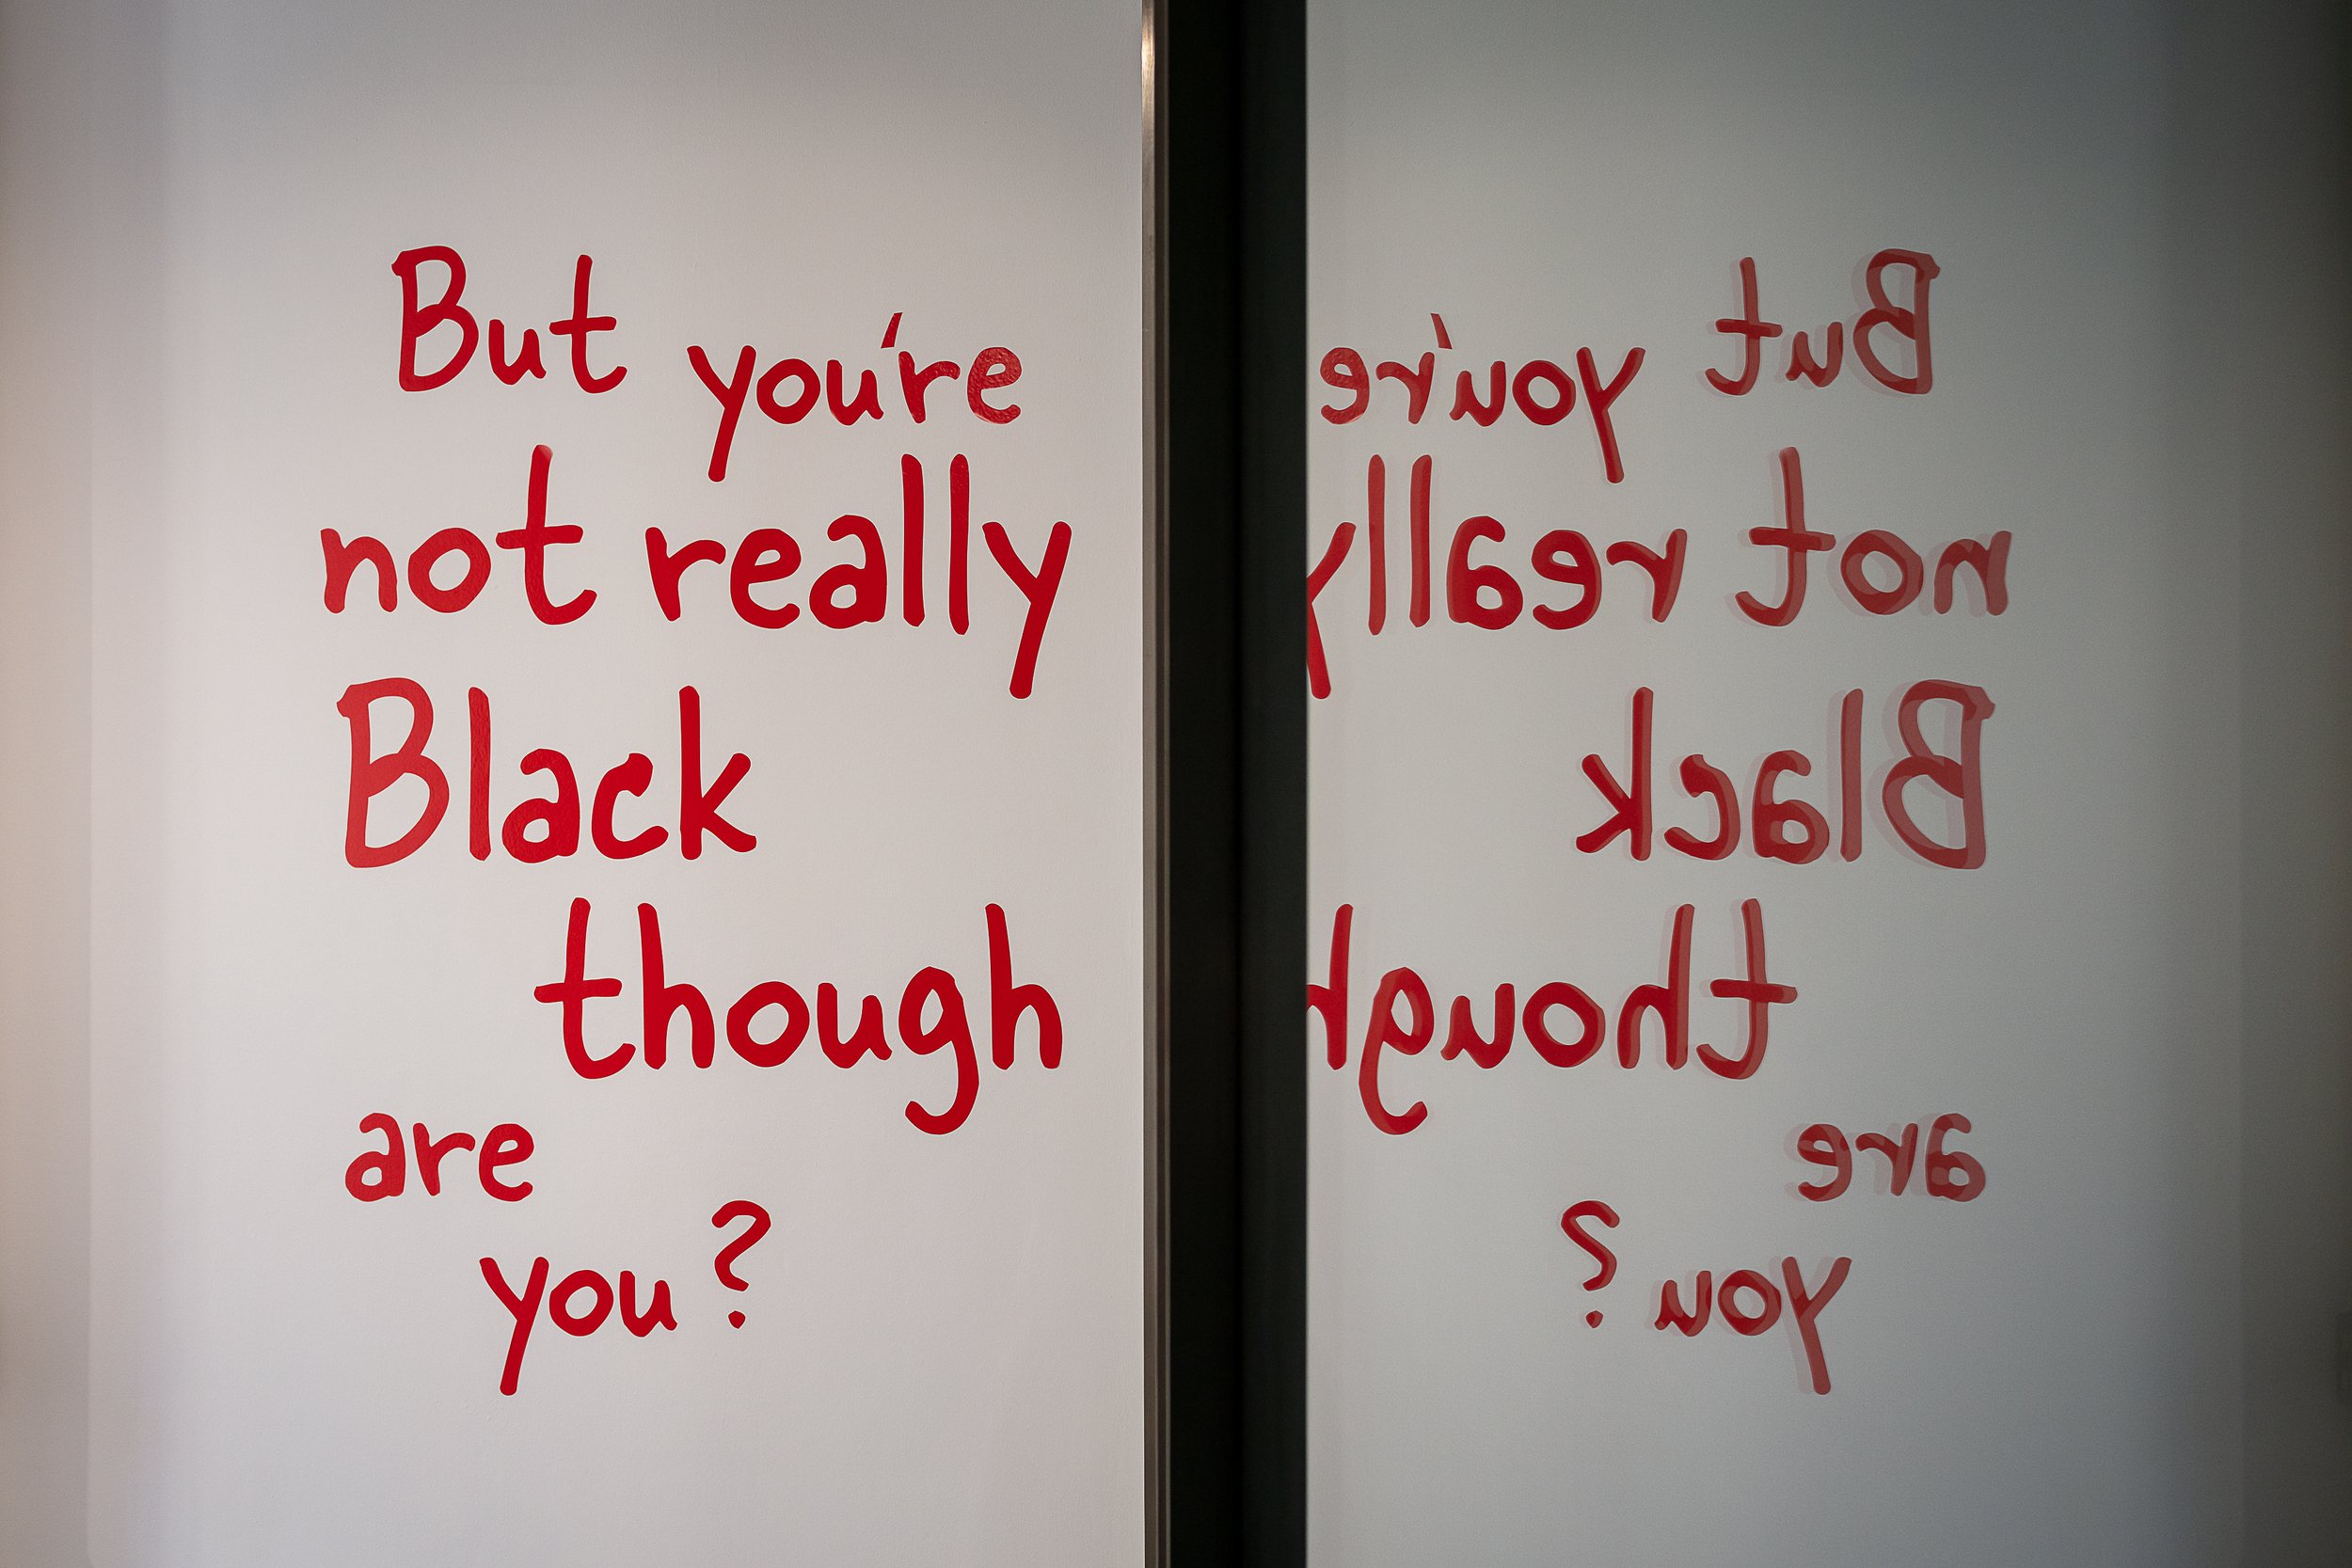 But you're
not really
Black
though
are
you?
But you're
not really
Black
though
are
you?